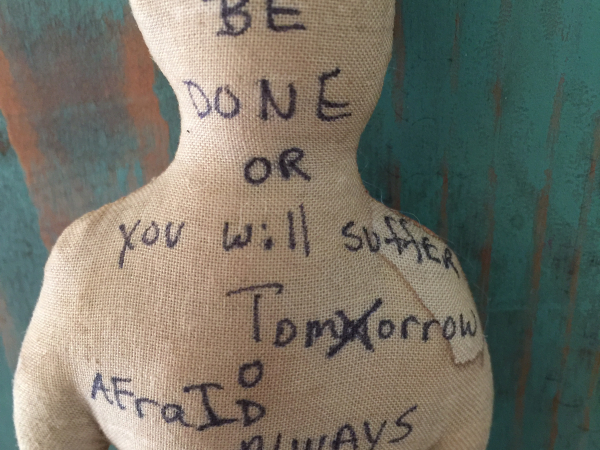 BE
DONE
OR
You will suffER
Tomorrow
O
AFraID
ALWAYS